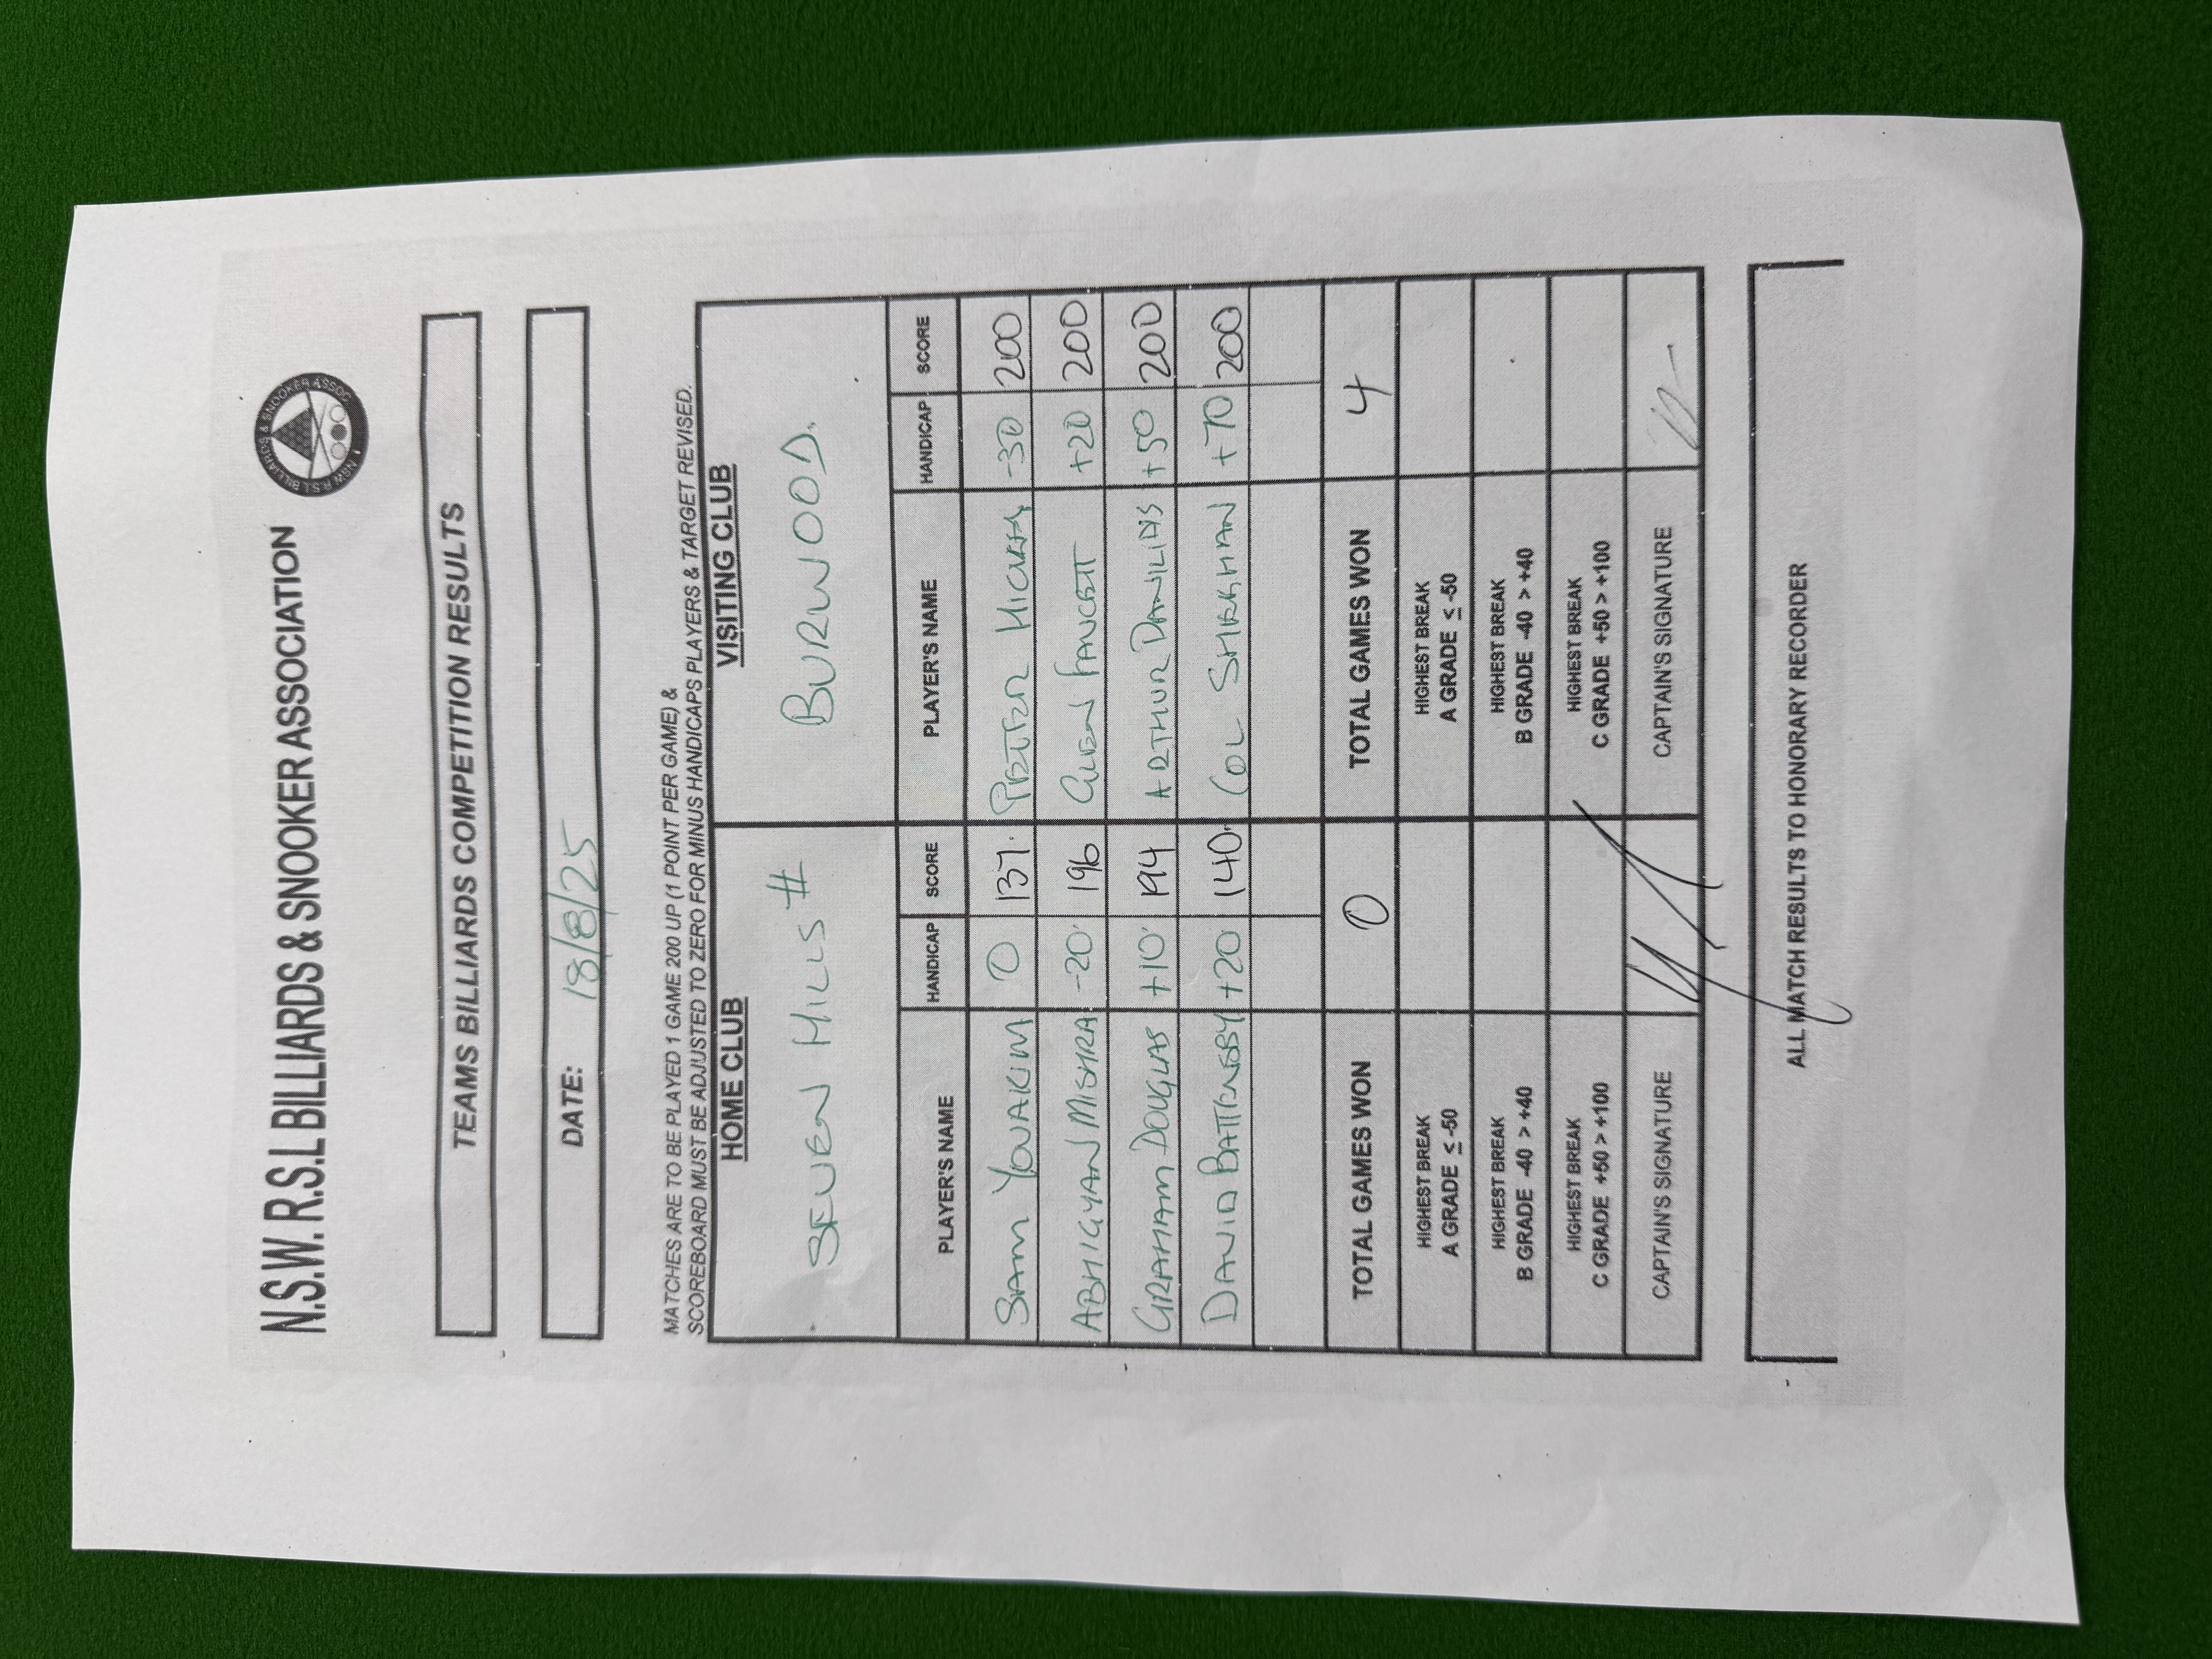 N.S.W. R.S.L BILLIARDS & SNOOKER ASSOCIATION
NSW R.S.L BILLIARDS & SNOOKER ASSOC.
TEAMS BILLIARDS COMPETITION RESULTS
DATE: 18/8/25
MATCHES ARE TO BE PLAYED 1 GAME 200 UP (1 POINT PER GAME) &
SCOREBOARD MUST BE ADJUSTED TO ZERO FOR MINUS HANDICAPS PLAYERS & TARGET REVISED.
HOME CLUB VISITING CLUB
SEVEN HILLS # BURWOOD.
PLAYER'S NAME HANDICAP SCORE PLAYER'S NAME HANDICAP SCORE
SAM YOUAKIM 0 137. PETER HICKEY -30 200
ABHIGYAN MISHRA -20 196 GLEN FAUCETT +20 200
GRAHAM DOUGLAS +10 194 ARTHUR DANILINS +50 200
DAVID BATTENSBY +20 140. COL SHEEHAN +70 200
TOTAL GAMES WON 0 TOTAL GAMES WON 4
HIGHEST BREAK HIGHEST BREAK
A GRADE ≤ -50 A GRADE ≤ -50
HIGHEST BREAK HIGHEST BREAK
B GRADE -40 > +40 B GRADE -40 > +40
HIGHEST BREAK HIGHEST BREAK
C GRADE +50 > +100 C GRADE +50 > +100
CAPTAIN'S SIGNATURE CAPTAIN'S SIGNATURE
ALL MATCH RESULTS TO HONORARY RECORDER